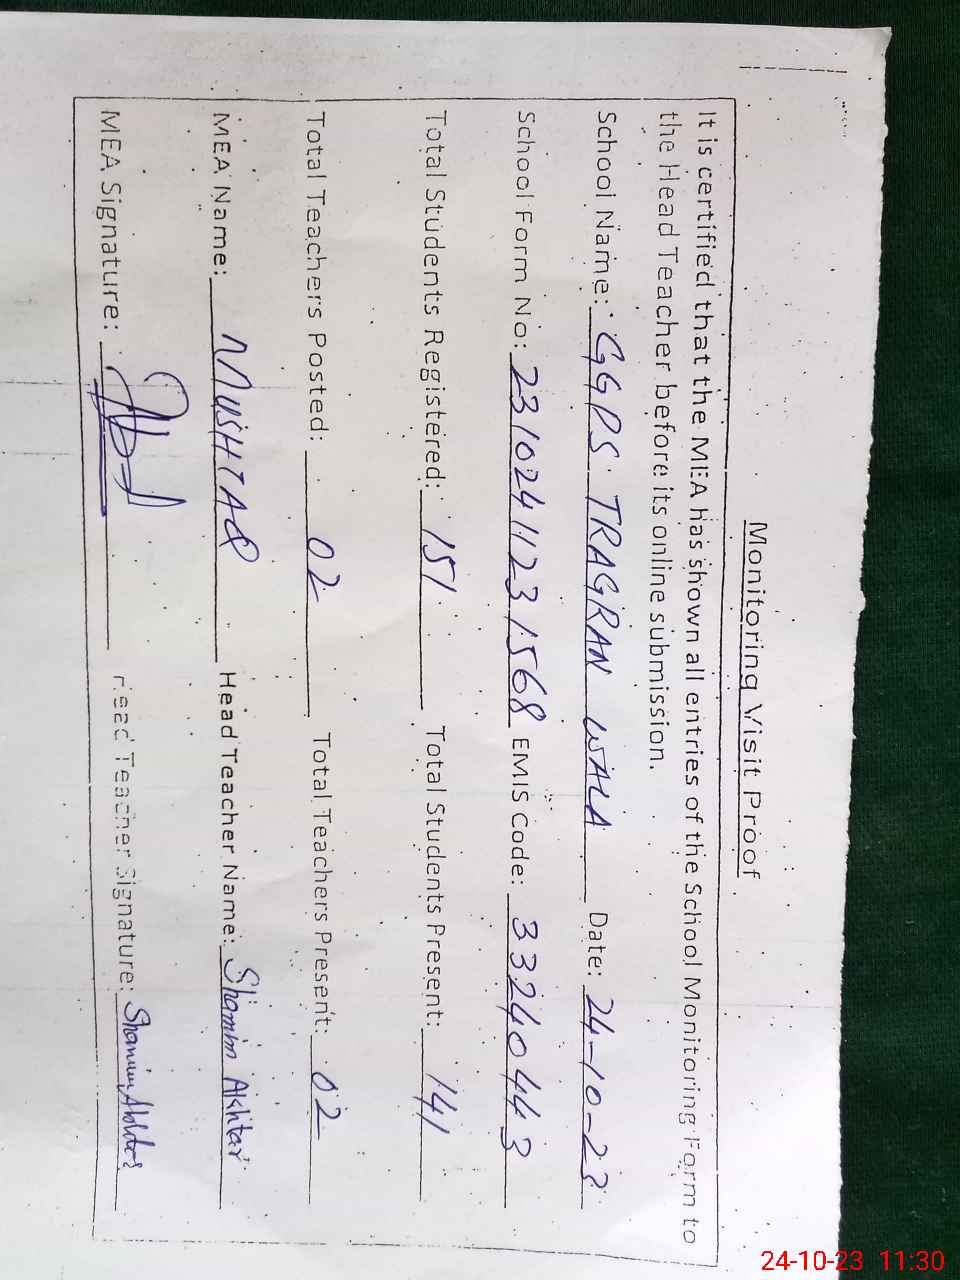 Monitoring Visit Proof
It is certified that the MEA has shown all entries of the School Monitoring Form to
the Head Teacher before its online submission.
School Name: GGPS TRAGRAN WALA Date: 24-10-23
School Form No: 23102411231568 EMIS Code: 33240443
Total Students Registered: 151 Total Students Present: 141
Total Teachers Posted: 02 Total Teachers Present: 02
MEA Name: MUSHTAQ Head Teacher Name: Shamim Akhtar
MEA Signature: Head Teacher Signature: Shamim Akhtar
24-10-23 11:30